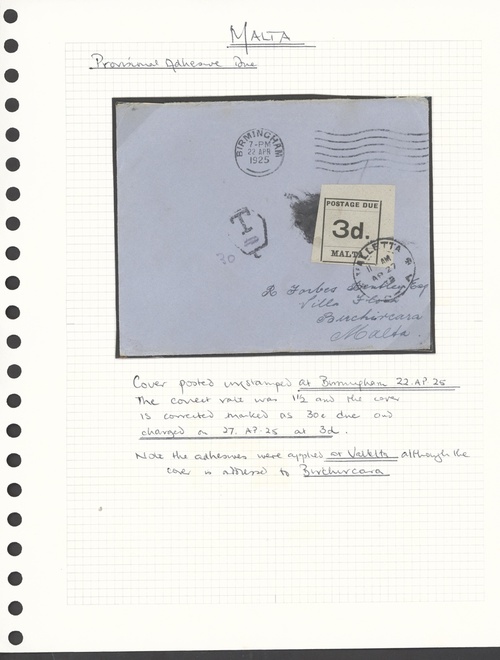 MALTA
Provisional Adhesive Due
BIRMINGHAM
7-PM
22 APR
1925
T
30
POSTAGE DUE
3d.
MALTA
VALLETTA
AM
AP 27
R Forbes Esq
Villa
Birchircara
Malta.
Cover posted unstamped at Birmingham 22.AP.25
The correct rate was 1½ and the cover
is corrected marked as 30c due and
charged on 27.AP.25 at 3d.
Note the adhesives were applied at Valletta although the
cover is addressed to Birchircara